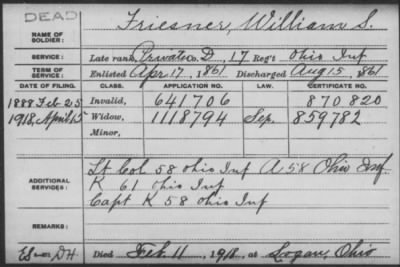 DEAD
NAME OF SOLDIER: Friesner, William S.
SERVICE: Late rank, Private Co. D, 17 Reg't Ohio Inf
TERM OF SERVICE: Enlisted Apr 17, 1861 Discharged Aug 15, 1861
DATE OF FILING. CLASS. APPLICATION NO. LAW. CERTIFICATE NO.
1888 Feb 25 Invalid, 641706 870820
1918, April 15 Widow, 1118794 Sep. 859782
Minor,
Lt Col 58 Ohio Inf A 58 Ohio Inf
ADDITIONAL SERVICES: K 61 Ohio Inf
Capt K 58 Ohio Inf
REMARKS:
Died Feb. 11, 1918, at Logan, Ohio